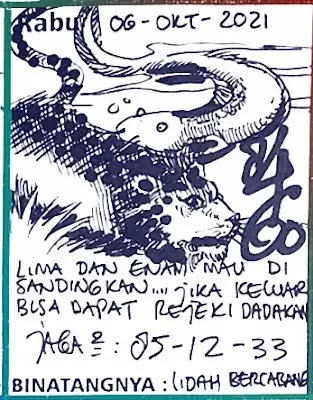 Rabu 06-OKT-2021
LIMA DAN ENAM MAU DI
SANDINGKAN.... JIKA KELUAR
BISA DAPAT REJEKI DADAKAN
JAGA2 : 05-12-33
BINATANGNYA : LIDAH BERCABANG